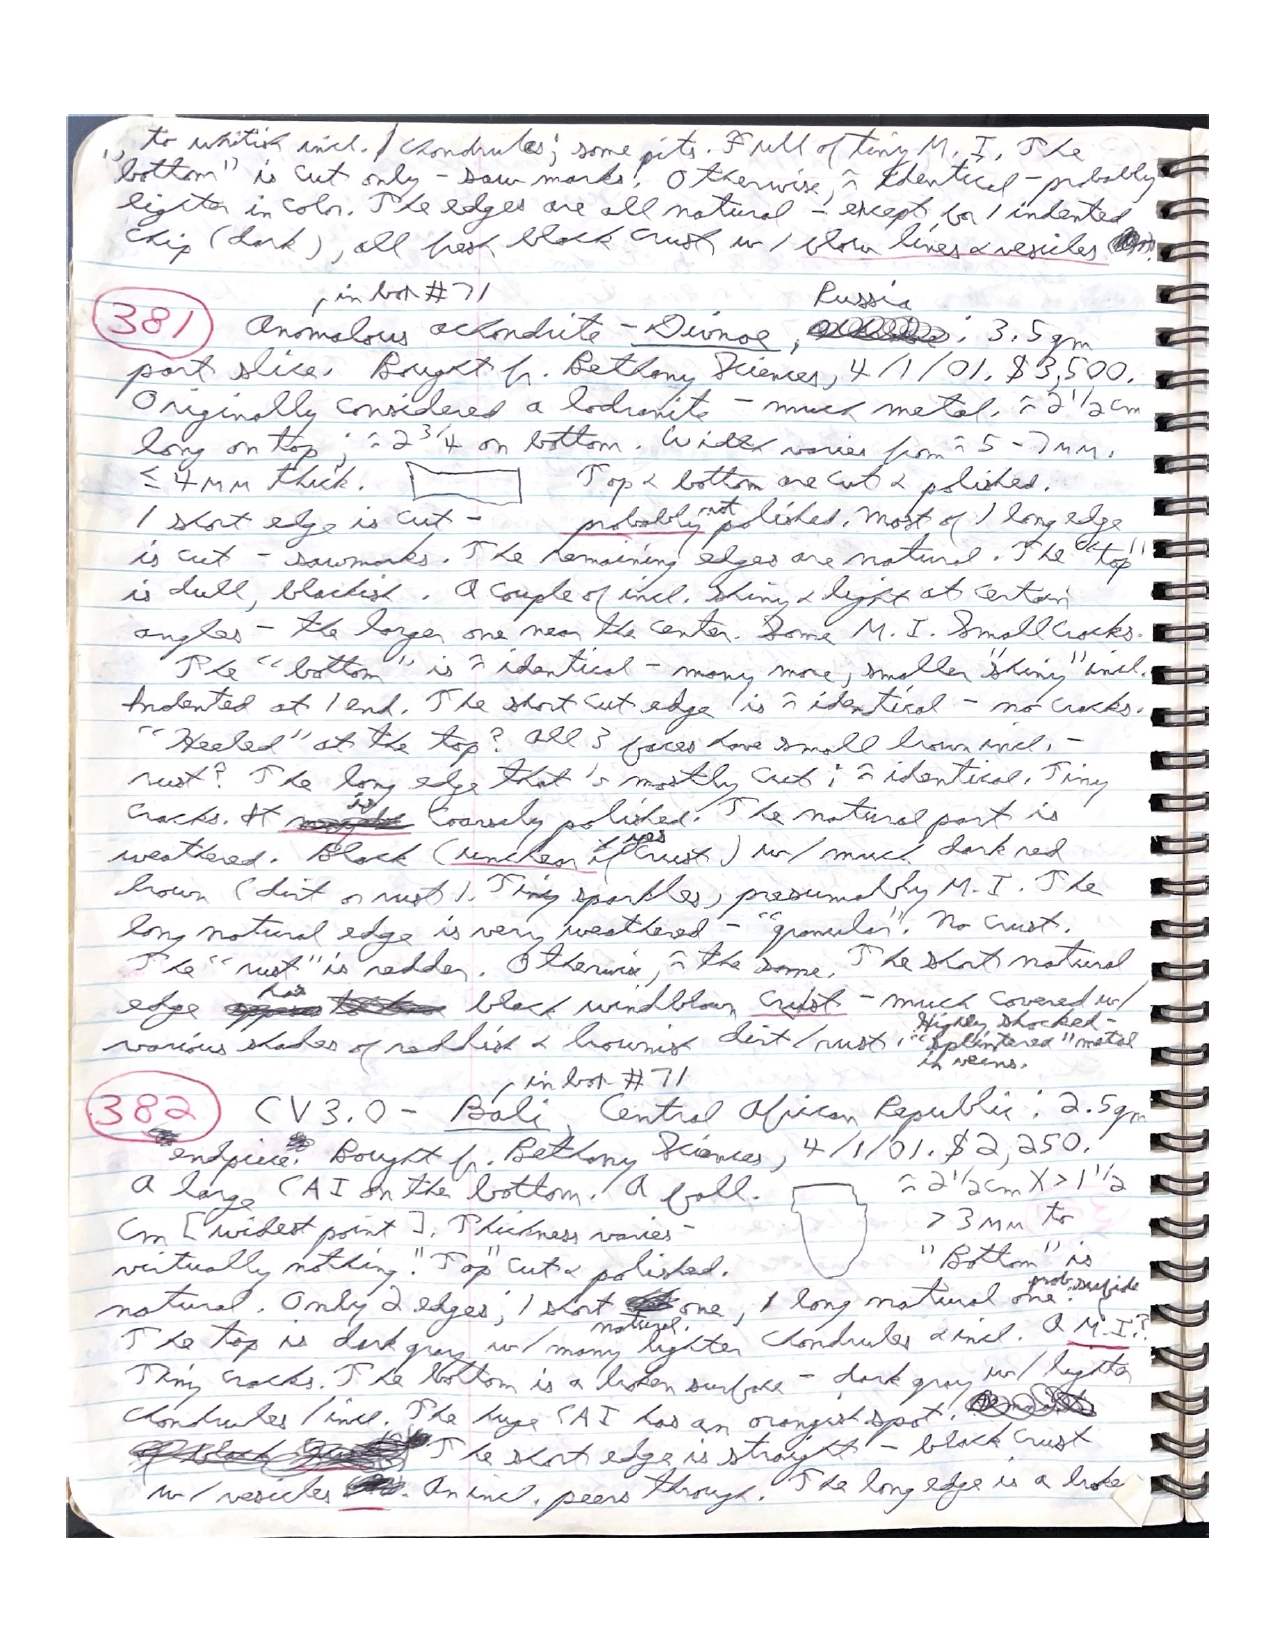 to whitish incl./chondrules; some pits. Full of tiny M.I. The
"bottom" is cut only - saw marks. Otherwise, ≈ identical - probably
lighter in color. The edges are all natural - except for 1 indented
chip (dark), all fresh black crust w/ flow lines & vesicles
in box #71
Russia
381 Anomalous achondrite - Divnoe, : 3.5gm
part slice. Bought fr. Bethany Sciences, 4/1/01. $3,500.
Originally considered a lodranite - much metal. ≈ 2 1/2 cm
long on top; ≈ 2 3/4 on bottom. Width varies from ≈ 5 - 7 mm.
≤ 4 mm thick. Top & bottom are cut & polished.
1 short edge is cut - probably not polished. Most of 1 long edge
is cut - sawmarks. The remaining edges are natural. The "top"
is dull, blackish. A couple of incl. shiny & light at certain
angles - the larger one near the center. Some M.I. Small cracks.
The "bottom" is ≈ identical - many more, smaller "shiny" incl.
Indented at 1 end. The short cut edge is ≈ identical - no cracks.
"Heeled" at the top? All 3 faces have small brown incl. -
rust? The long edge that's mostly cut: ≈ identical. Tiny
cracks. It is coarsely polished. The natural part is
weathered. Black (unclear if was crust) w/ much dark red
brown (dirt or rust). Tiny sparkles, presumably M.I. The
long natural edge is very weathered - "granular". No crust.
The "rust" is redder. Otherwise, ≈ the same. The short natural
edge has black windblown crust - much covered w/
various shades of reddish & brownish dirt/rust. Highly shocked -
"splintered" metal
in veins.
in box #71
382 CV3.0 - Bali, Central African Republic: 2.5gm
endpiece. Bought fr. Bethany Sciences, 4/1/01. $2,250.
A large CAI on the bottom. A fall. ≈ 2 1/2 cm X > 1 1/2
cm [widest point]. Thickness varies - > 3 mm to
virtually nothing. "Top" cut & polished. "Bottom" is
natural. Only 2 edges; 1 short one, 1 long natural one. prob. sulfide
natural.
The top is dark gray w/ many lighter chondrules & incl. A M.I.?
Tiny cracks. The bottom is a broken surface - dark gray w/ lighter
chondrules/incl. The huge CAI has an orangish spot.
The short edge is straight - black crust
w/ vesicles. An incl. peers through. The long edge is a broke